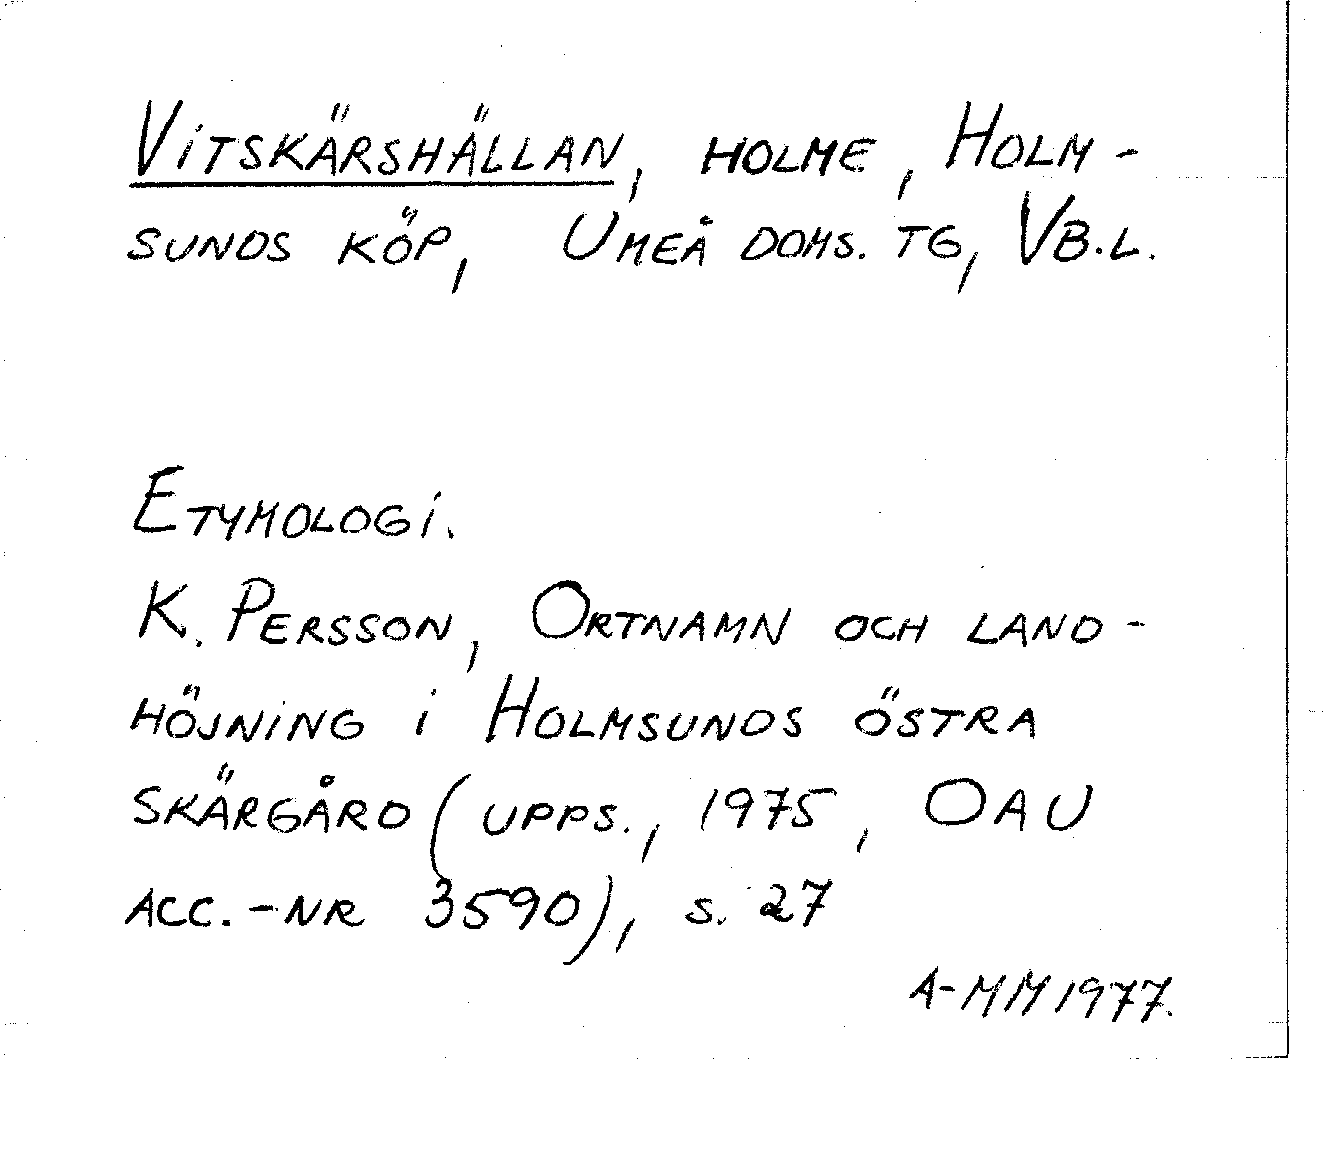 Vitskärshällan, holme, Holm-
sunds köp, Umeå doms. tg, Vb.l.
Etymologi.
K. Persson, Ortnamn och land-
höjning i Holmsunds östra
skärgård (upps., 1975, OAU
acc.-nr 3590), s. 27
A-MM 1977.